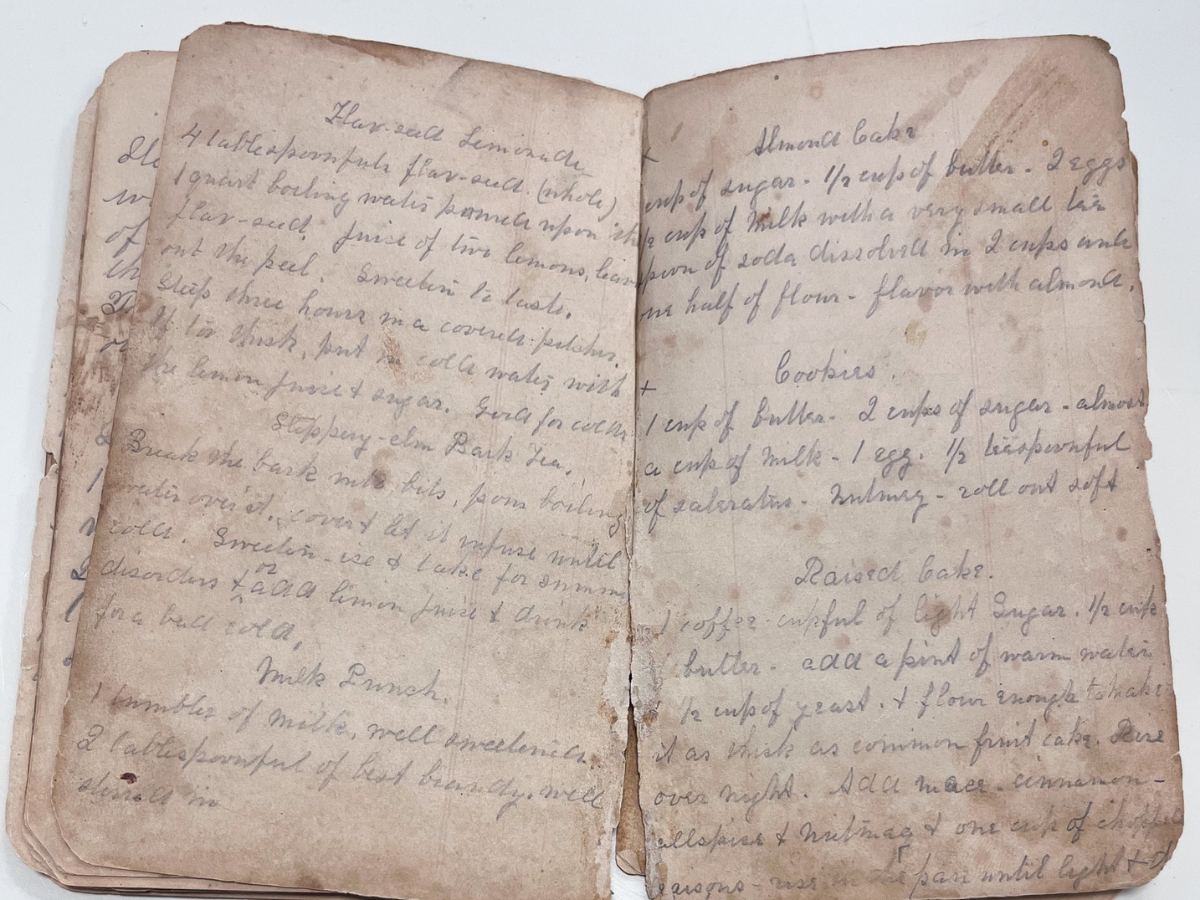 Flax-seed Lemonade
4 tablespoonfuls flax-seed. (whole)
1 quart boiling water poured upon the
flax-seed. Juice of two lemons, leave
out the peel. Sweeten to taste.
Steep three hours in a covered pitcher.
If too thick, put in cold water with
the lemon juice & sugar. Good for colds
Slippery-elm Bark Tea.
Break the bark into bits, pour boiling
water over it, cover & let it infuse until
cold. Sweeten - ice & take for summer
disorders & or add lemon juice & drink
for a bad cold.
Milk Punch.
1 tumbler of milk, well sweetened.
2 tablespoonful of best brandy, well
stirred in
Almond Cake
cup of sugar - 1/2 cup of butter - 2 eggs
1/2 cup of Milk with a very small tea
spoon of soda dissolved in 2 cups and
one half of flour - flavor with almond.
Cookies.
1 cup of butter - 2 cups of sugar - almost
a cup of Milk - 1 egg. 1/2 teaspoonful
of saleratus - Nutmeg - roll out soft
Raised Cake.
1 coffee-cupful of light Sugar. 1/2 cup
butter - add a pint of warm water
1/2 cup of yeast. & flour enough to make
it as thick as common fruit cake. Rise
over night. Add mace - cinnamon -
allspice & Nutmeg & one cup of chopped
raisons - rise in the pans until light &